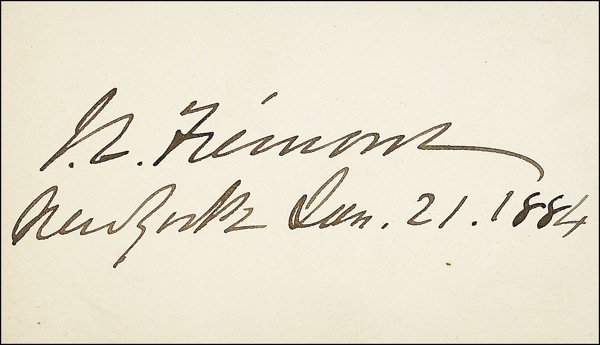 J. C. Frémont
New York Jan. 21. 1884